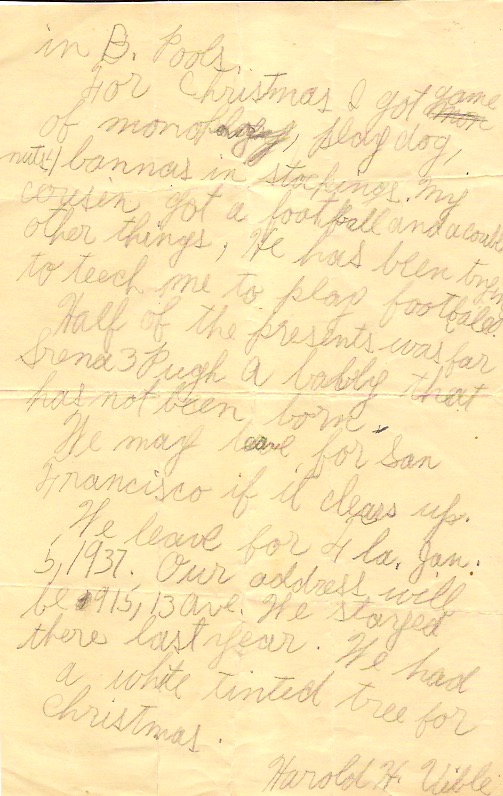 in B. Pools.
For Christmas I got game
of monopoly, play dog,
nuts, bannas in stockings. My
cousin got a football and a couple
other things, He has been tryin
to teech me to play football.
Half of the presents was for
Srena 3 Pugh a babby that
has not been born.
We may leave for San
Francisco if it clears up.
We leave for 4 la. Jan.
5, 1937. Our address will
be 915, 13 ave. We stayed
there last year. We had
a white tinted tree for
Christmas.
Harold H. Uible